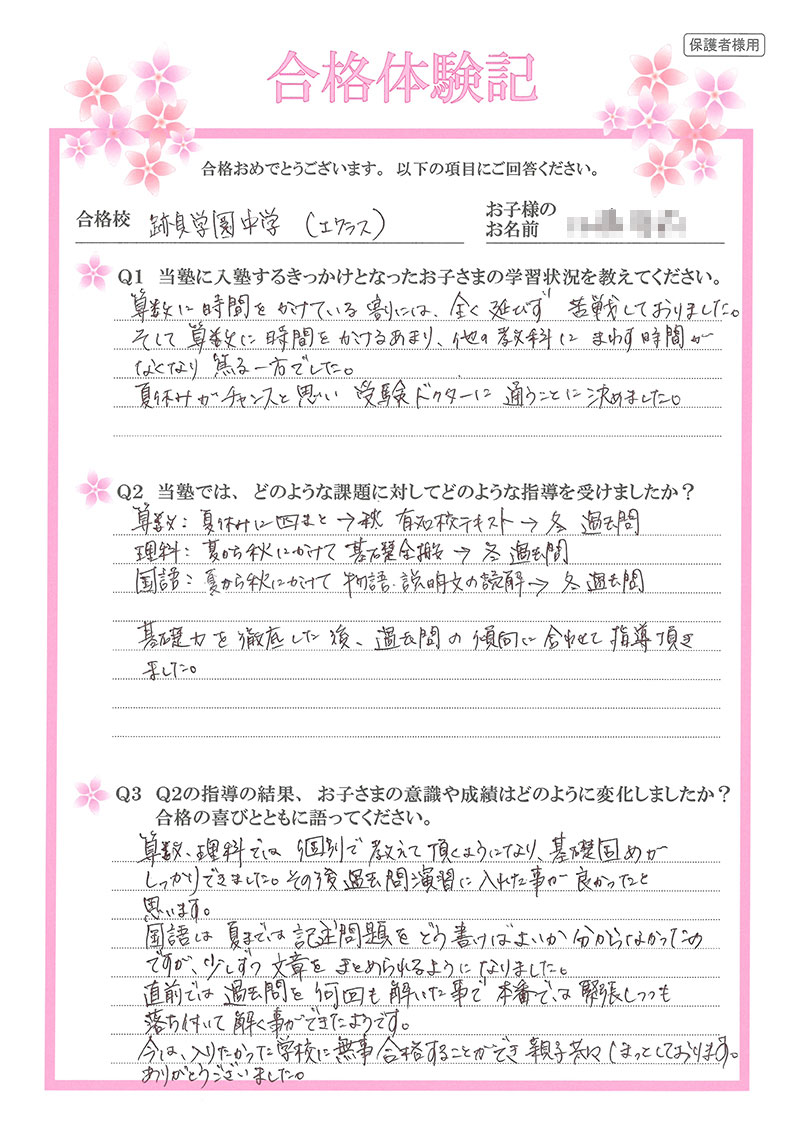 保護者様用
合格体験記
合格おめでとうございます。以下の項目にご回答ください。
合格校 跡見学園中学 (Iクラス)
お子様の
お名前
Q1 当塾に入塾するきっかけとなったお子さまの学習状況を教えてください。
算数に時間をかけている割りには、全く延びず 苦戦しておりました。
そして算数に時間をかけるあまり、他の教科にまわす時間が
なくなり焦る一方でした。
夏休みがチャンスと思い 受験ドクターに通うことに決めました。
Q2 当塾では、どのような課題に対してどのような指導を受けましたか?
算数:夏休みに四まと→秋 有名校テキスト→冬 過去問
理科:夏から秋にかけて基礎全般→冬 過去問
国語:夏から秋にかけて 物語・説明文の読解→冬 過去問
基礎力を徹底した後、過去問の傾向に合わせて指導頂き
ました。
Q3 Q2の指導の結果、お子さまの意識や成績はどのように変化しましたか?
合格の喜びとともに語ってください。
算数、理科では 個別で教えて頂くようになり、基礎固めが
しっかりできました。その後過去問演習に入れた事が良かったと
思います。
国語は夏までは記述問題をどう書けばよいか分からなかったの
ですが、少しずつ文章をまとめられるようになりました。
直前では過去問を何回も解いた事で本番では緊張しつつも
落ち付いて解く事ができたようです。
今は、入りたかった学校に無事合格することができ親子共々ほっとしております。
ありがとうございました。